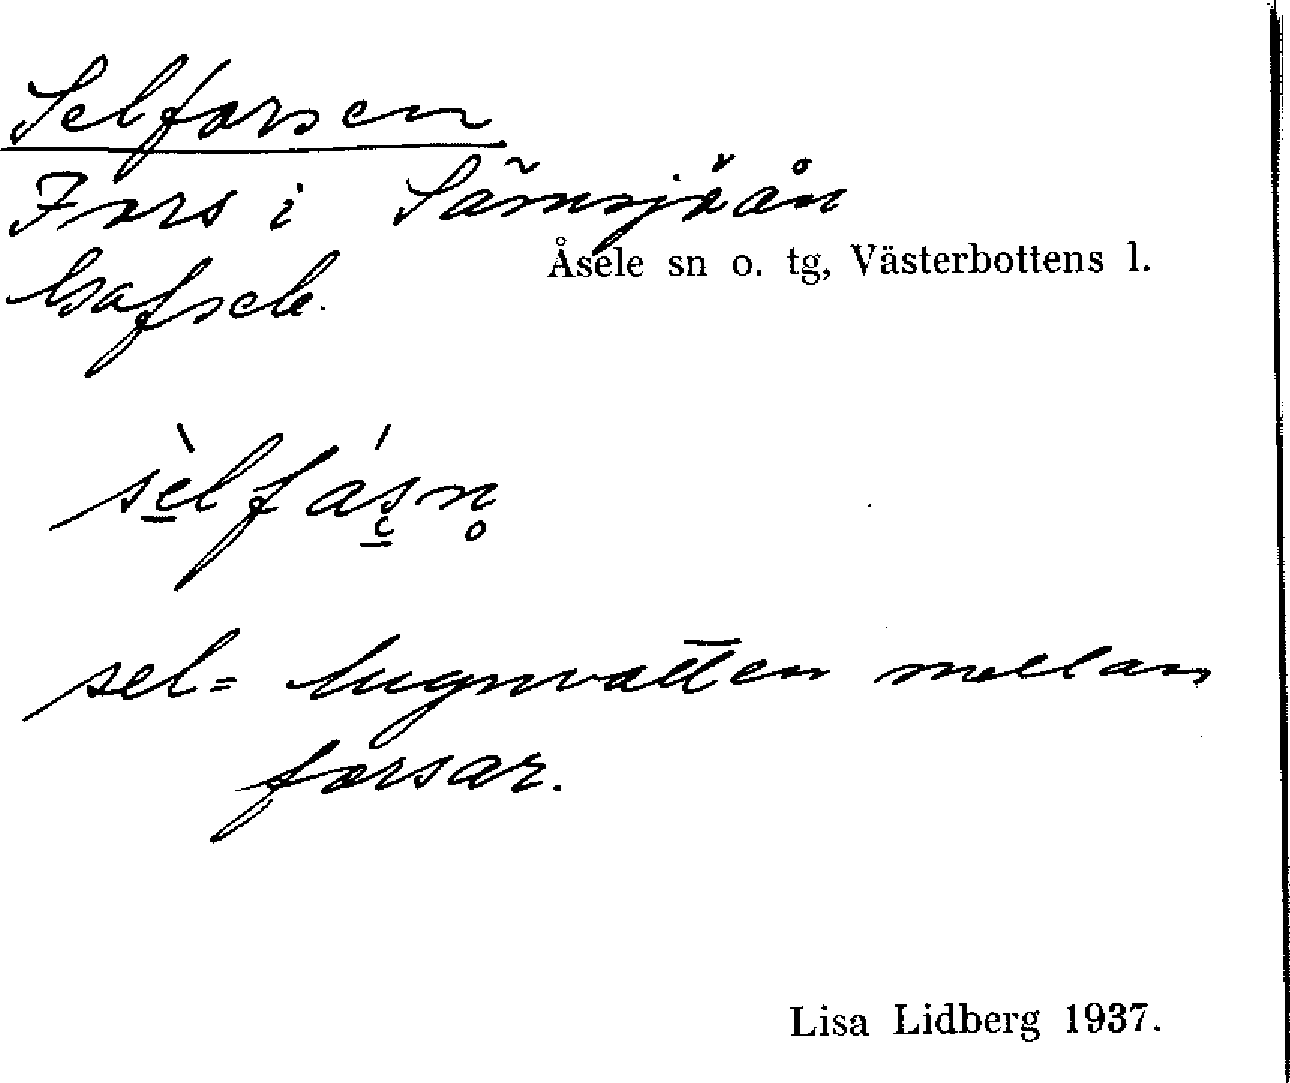 Selforsen
Fors i Sämsjöån
Åsele sn o. tg, Västerbottens l.
Gafsele.
sèlfásn̥
sel= lugnvatten mellan
forsar.
Lisa Lidberg 1937.